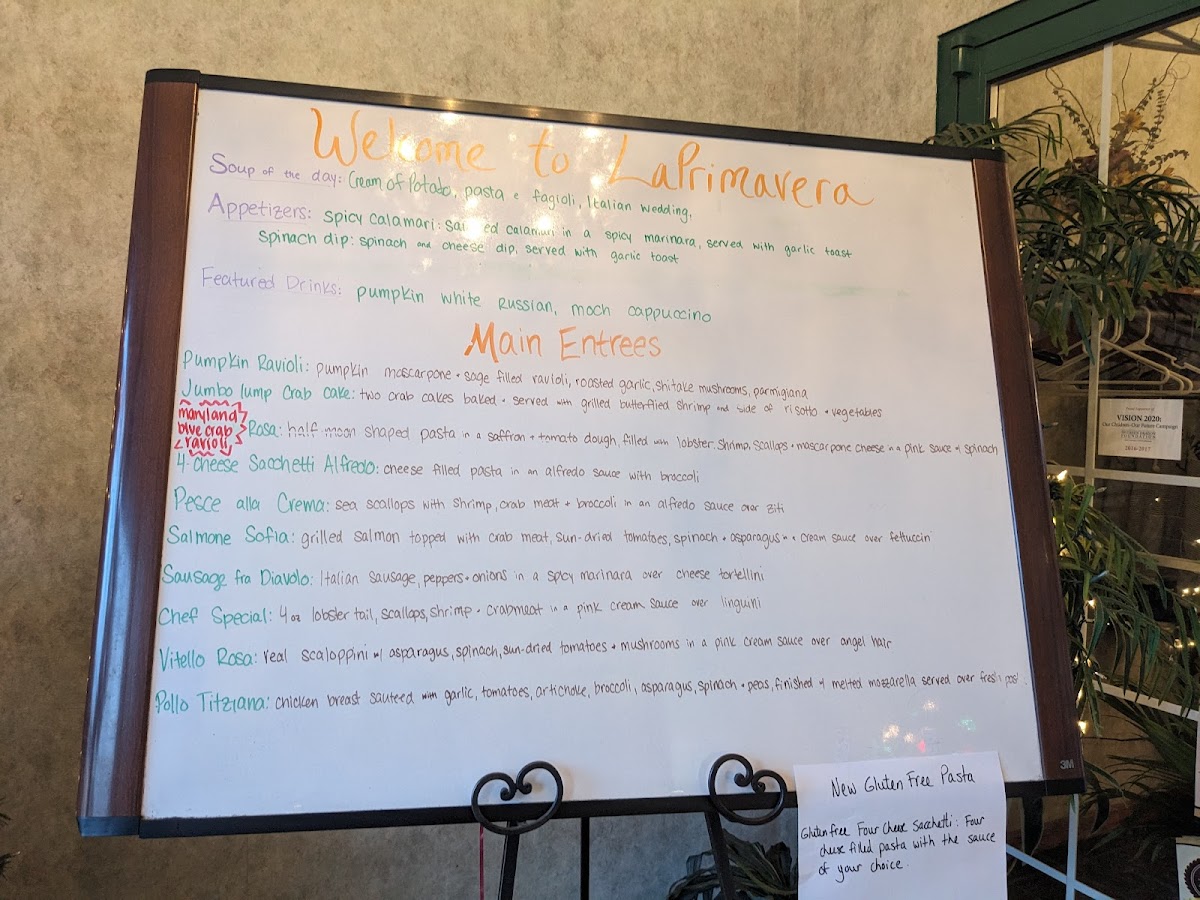 Welcome to LaPrimavera
Soup of the day: Cream of Potato, pasta e fagioli, Italian wedding,
Appetizers: spicy calamari: calamari in a spicy marinara, served with garlic toast
Spinach dip: spinach and cheese dip, served with garlic toast
Featured Drinks: pumpkin white Russian, moch cappuccino
Main Entrees
Pumpkin Ravioli: pumpkin mascarpone + sage filled ravioli, roasted garlic, shitake mushrooms, parmigiana
Jumbo lump Crab cake: two crab cakes baked + served with grilled butterflied shrimp and side of risotto + vegetables
maryland
blue crab
ravioli
Rosa: half moon shaped pasta in a saffron + tomato dough, filled with lobster, shrimp, scallops + mascarpone cheese in a pink sauce w/ spinach
4 cheese Sacchetti Alfredo: cheese filled pasta in an alfredo sauce with broccoli
Pesce alla Crema: sea scallops with shrimp, crab meat + broccoli in an alfredo sauce over ziti
Salmone Sofia: grilled salmon topped with crab meat, sun-dried tomatoes, spinach + asparagus cream sauce over fettuccin
Sausage fra Diavolo: Italian sausage, peppers + onions in a spicy marinara over cheese tortellini
Chef Special: 4 oz lobster tail, scallops, shrimp + crabmeat in a pink cream sauce over linguini
Vitello Rosa: veal scaloppini w/ asparagus, spinach, sun-dried tomatoes + mushrooms in a pink cream sauce over angel hair
Pollo Titziana: chicken breast sauteed with garlic, tomatoes, artichoke, broccoli, asparagus, spinach + peas, finished w/ melted mozzarella served over fresh
3M
New Gluten Free Pasta
Gluten free Four Cheese Sacchetti: Four
cheese filled pasta with the sauce
of your choice.
VISION 2020:
Our Children-Our Future Campaign
2016-2017